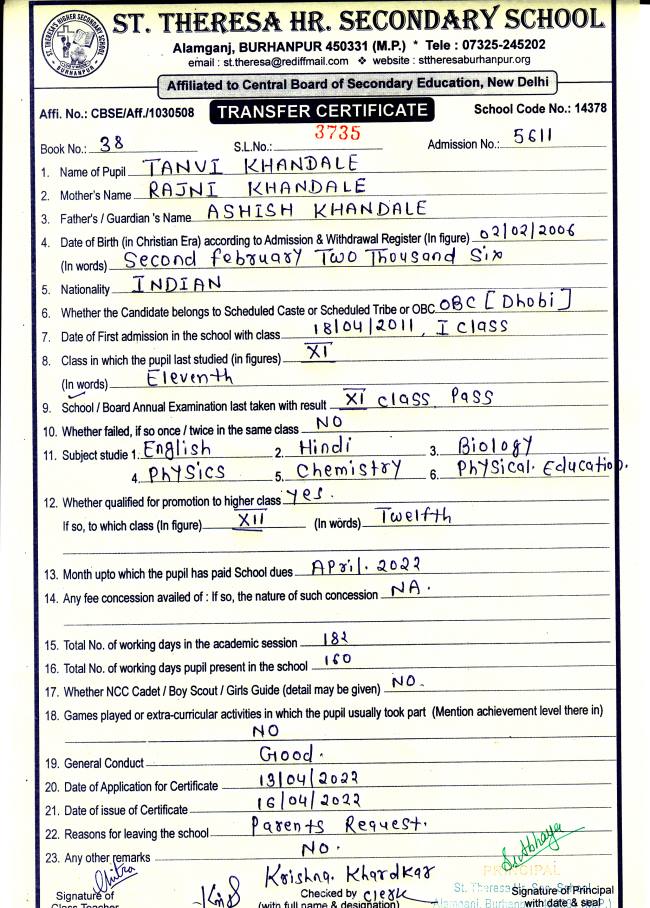 ST. THERESA HR. SECONDARY SCHOOL
Alamganj, BURHANPUR 450331 (M.P.) * Tele : 07325-245202
email : st.theresa@rediffmail.com ❖ website : sttheresaburhanpur.org
Affiliated to Central Board of Secondary Education, New Delhi
Affi. No.: CBSE/Aff./1030508 TRANSFER CERTIFICATE School Code No.: 14378
Book No.: 38 S.L.No.: 3735 Admission No.: 5611
1. Name of Pupil TANVI KHANDALE
2. Mother's Name RAJNI KHANDALE
3. Father's / Guardian 's Name ASHISH KHANDALE
4. Date of Birth (in Christian Era) according to Admission & Withdrawal Register (In figure) 02/02/2006
(In words) Second february Two Thousand Six
5. Nationality INDIAN
6. Whether the Candidate belongs to Scheduled Caste or Scheduled Tribe or OBC OBC [Dhobi]
7. Date of First admission in the school with class 18/04/2011, I class
8. Class in which the pupil last studied (in figures) XI
(In words) Eleventh
9. School / Board Annual Examination last taken with result XI class Pass
10. Whether failed, if so once / twice in the same class NO
11. Subject studie 1. English 2. Hindi 3. Biology
4. Physics 5. Chemistry 6. Physical. Education.
12. Whether qualified for promotion to higher class yes.
If so, to which class (In figure) XII (In words) Twelfth
13. Month upto which the pupil has paid School dues April. 2022
14. Any fee concession availed of : If so, the nature of such concession NA.
15. Total No. of working days in the academic session 182
16. Total No. of working days pupil present in the school 160
17. Whether NCC Cadet / Boy Scout / Girls Guide (detail may be given) NO.
18. Games played or extra-curricular activities in which the pupil usually took part (Mention achievement level there in)
NO
19. General Conduct Good.
20. Date of Application for Certificate 13/04/2022
21. Date of issue of Certificate 16/04/2022
22. Reasons for leaving the school Parents Request.
23. Any other remarks NO.
Krishna. Khardkar
PRINCIPAL
Signature of Checked by clerk Signature of Principal
Class Teacher (with full name & designation) with date & seal